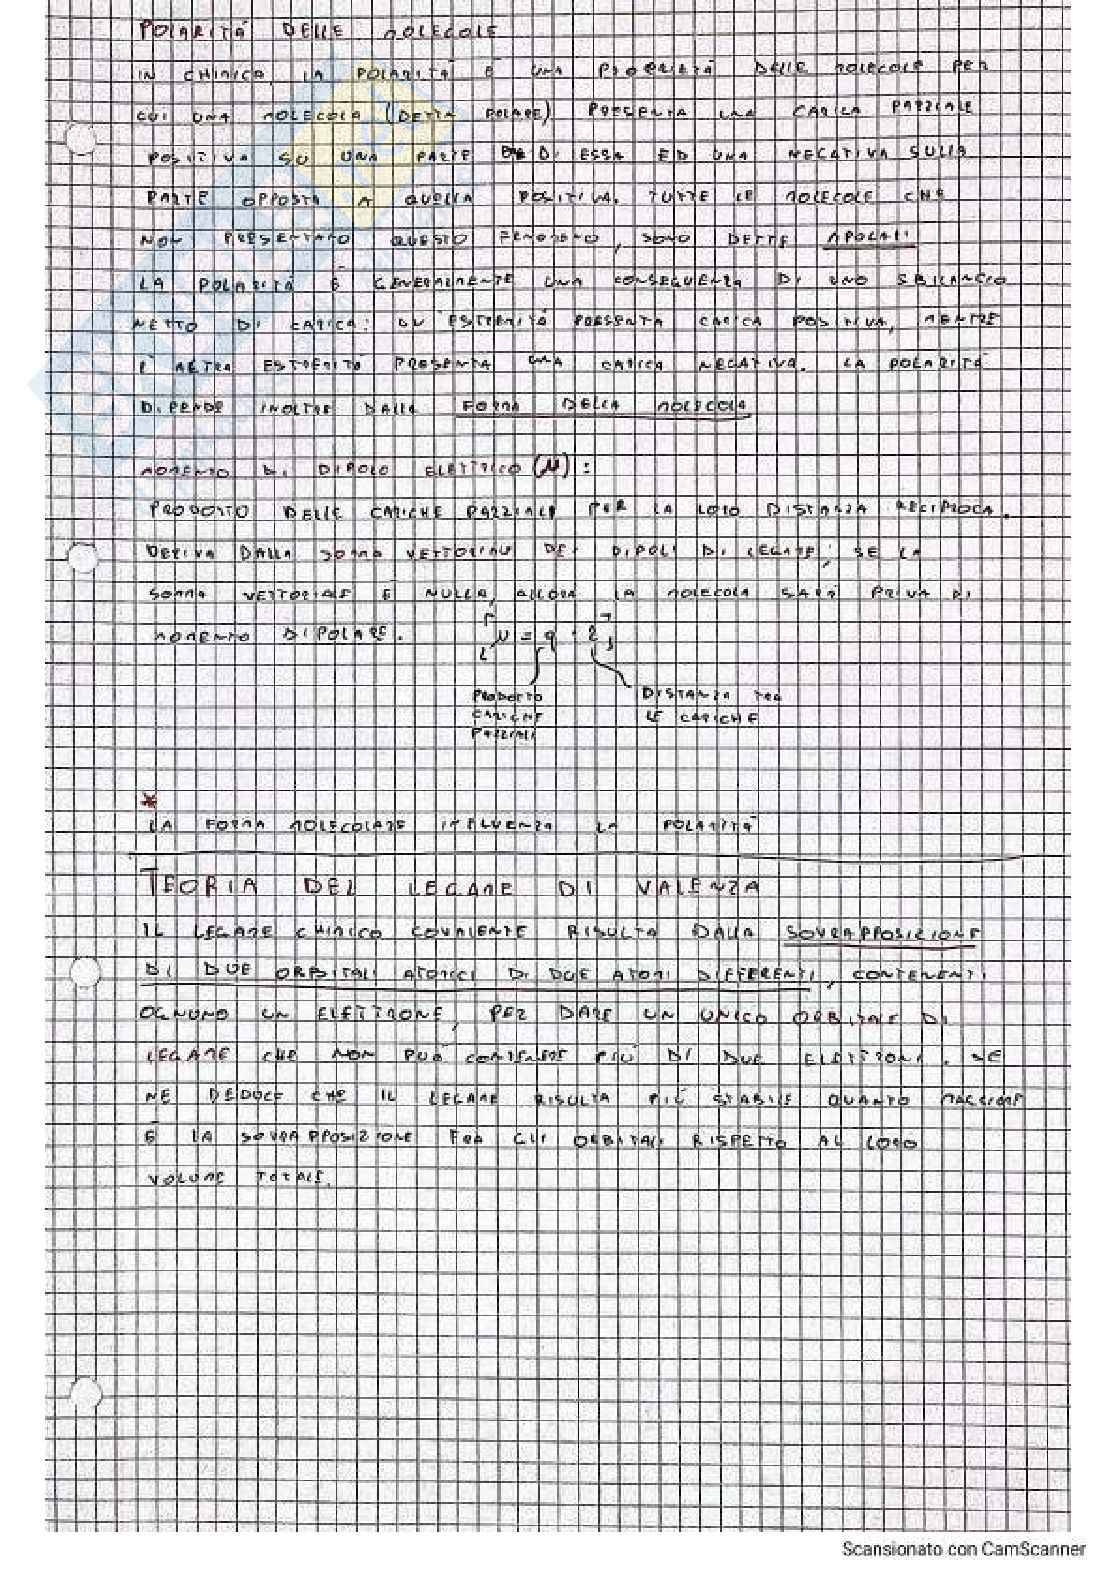 POLARITÀ DELLE MOLECOLE
IN CHIMICA, LA POLARITÀ È UNA PROPRIETÀ DELLE MOLECOLE PER
CUI UNA MOLECOLA (DETTA POLARE) PRESENTA UNA CARICA PARZIALE
POSITIVA SU UNA PARTE DI ESSA ED UNA NEGATIVA SULLA
PARTE OPPOSTA A QUELLA POSITIVA. TUTTE LE MOLECOLE CHE
NON PRESENTANO QUESTO FENOMENO, SONO DETTE APOLARI
LA POLARITÀ È GENERALMENTE UNA CONSEGUENZA DI UNO SBILANCIO
NETTO DI CARICA: UN'ESTREMITÀ PRESENTA CARICA POSITIVA, MENTRE
L'ALTRA ESTREMITÀ PRESENTA UNA CARICA NEGATIVA. LA POLARITÀ
DIPENDE INOLTRE DALLA FORMA DELLA MOLECOLA
MOMENTO DI DIPOLO ELETTRICO (μ):
PRODOTTO DELLE CARICHE PARZIALI PER LA LORO DISTANZA RECIPROCA.
DERIVA DALLA SOMMA VETTORIALE DEI DIPOLI DI LEGAME; SE LA
SOMMA VETTORIALE È NULLA, ALLORA LA MOLECOLA SARÀ PRIVA DI
MOMENTO DIPOLARE. [μ = q · l]
PRODOTTO DISTANZA TRA
CARICHE LE CARICHE
PARZIALI
*
LA FORMA MOLECOLARE INFLUENZA LA POLARITÀ
TEORIA DEL LEGAME DI VALENZA
IL LEGAME CHIMICO COVALENTE RISULTA DALLA SOVRAPPOSIZIONE
DI DUE ORBITALI ATOMICI DI DUE ATOMI DIFFERENTI, CONTENENTI
OGNUNO UN ELETTRONE, PER DARE UN UNICO ORBITALE DI
LEGAME CHE NON PUÒ CONTENERE PIÙ DI DUE ELETTRONI. SE
NE DEDUCE CHE IL LEGAME RISULTA PIÙ STABILE QUANTO MAGGIORE
È LA SOVRAPPOSIZIONE FRA GLI ORBITALI RISPETTO AL LORO
VOLUME TOTALE.
Scansionato con CamScanner